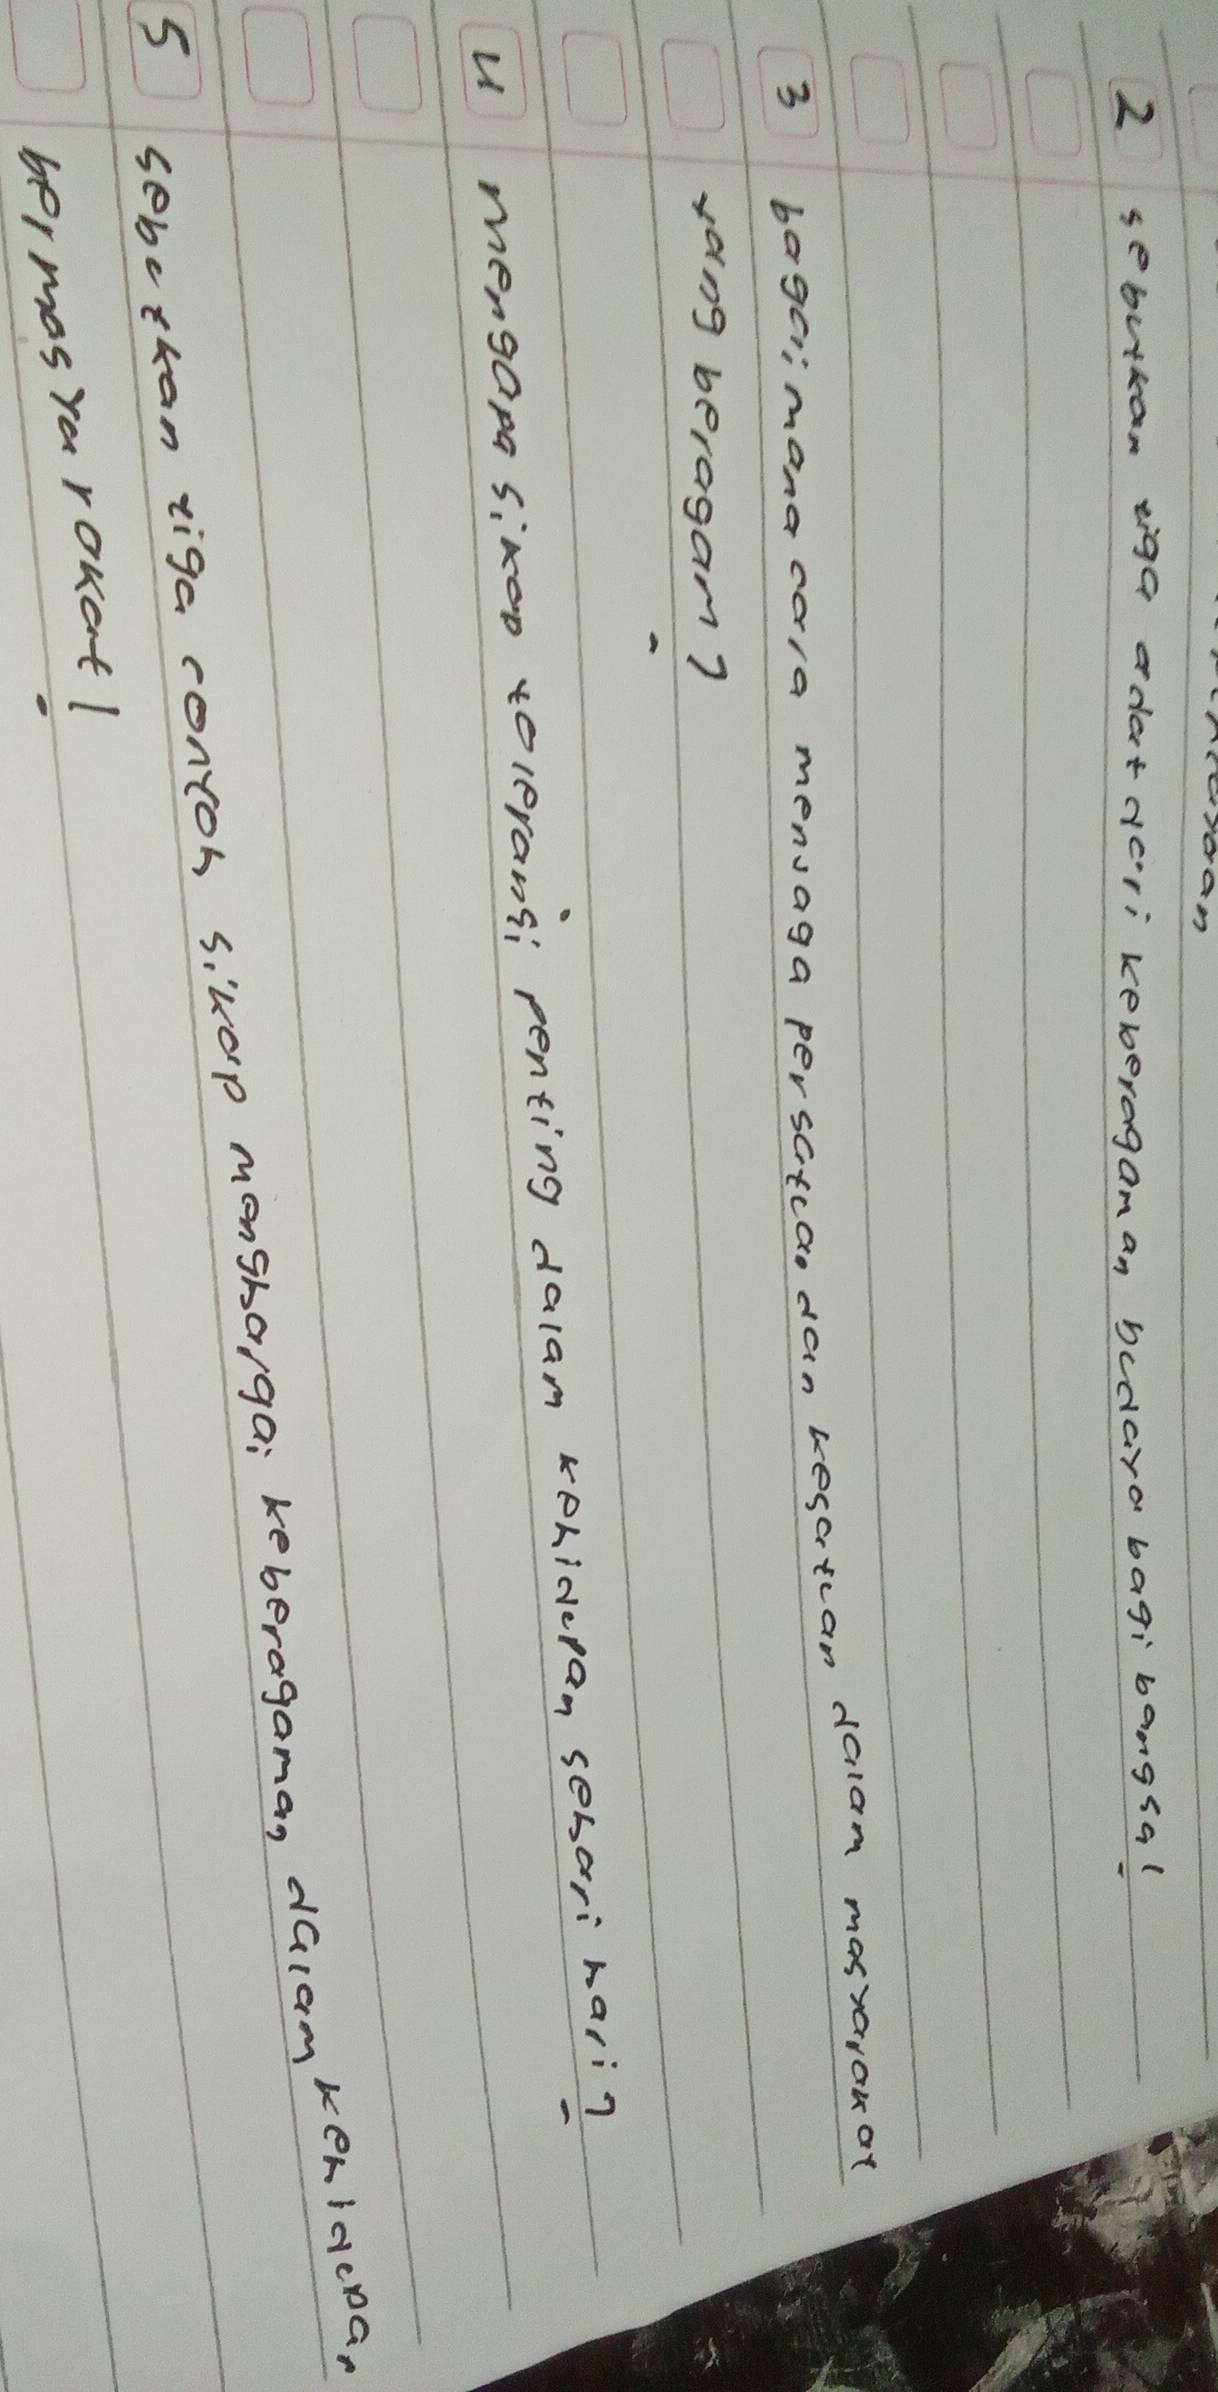 2 sebutkan tiga adat dari keberagaman budaya bagi bangsa!
3 bagaimana cara menjaga persatuan dan kesatuan dalam masyarakat
yang beragam?
4 mengapa sikap toleransi penting dalam kehidupan sehari hari?
5 sebutkan tiga contoh sikap menghargai keberagaman dalam kehidupan
bermasyarakat!